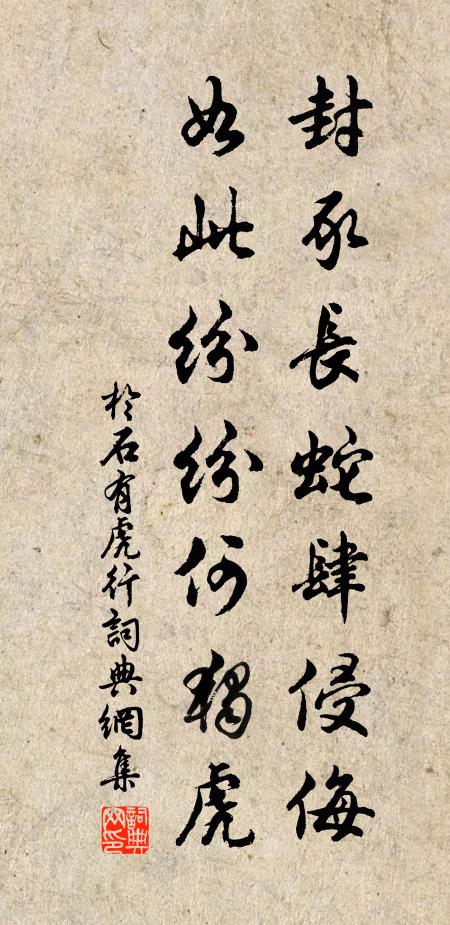 封豕長蛇肆侵侮
如此紛紛何獨虎
於石有虎行詞典網集
詞典網印